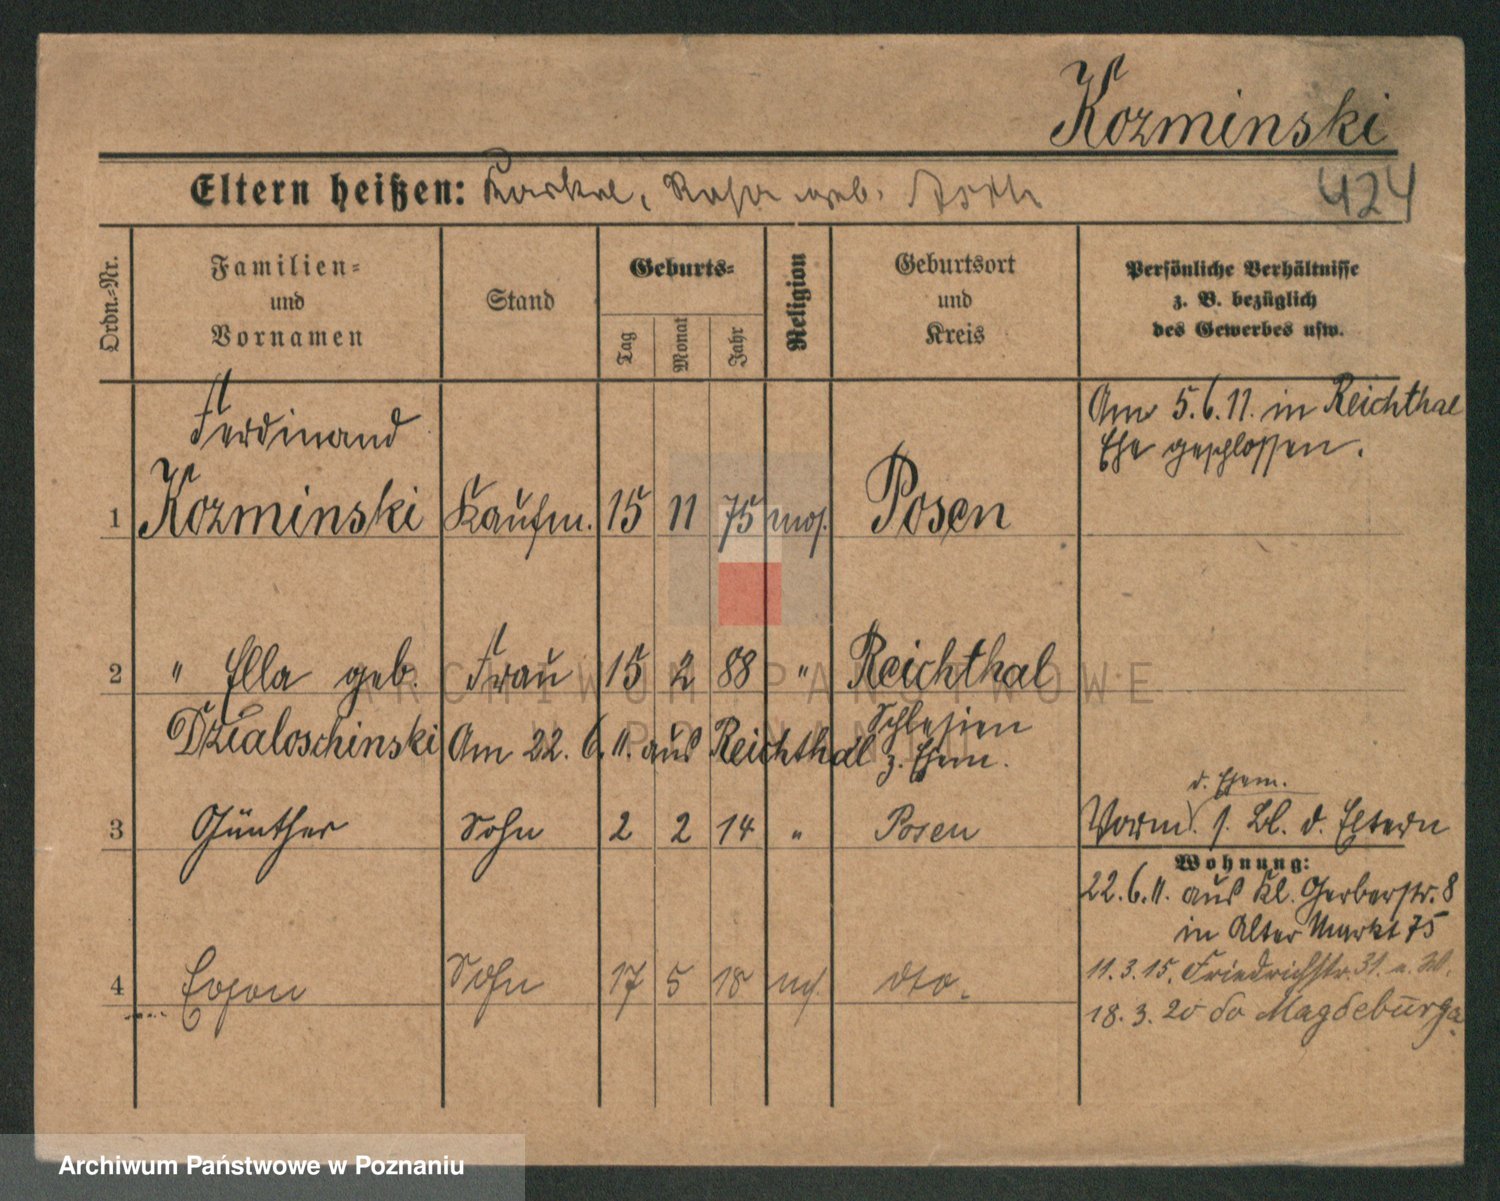 Kozminski
Eltern heißen: Rosa geb.
424
Ordn.-Nr.
Familien-
und
Vornamen
Stand
Geburts-
Tag
Monat
Jahr
Religion
Geburtsort
und
Kreis
Persönliche Verhältnisse
z. B. bezüglich
des Gewerbes usw.
Am 5.6.11. in Reichthal
Ehe geschlossen.
Ferdinand
1 Kozminski Kaufm. 15 11 75 mos. Posen
2 " Ella geb. Frau 15 2 88 " Reichthal
Schlesien
Dzialoschinski Am 22. 6. 11. aus Reichthal z. Ehem.
d. Ehem.
3 Günther Sohn 2 2 14 " Posen Vorm. s. Bl. d. Eltern
Wohnung:
22.6.11. aus Kl. Gerberstr. 8
in Alter Markt 75
4 Sohn 17 5 18 dto.
11.3.15. Friedrichstr. 31.
18.3.20 do Magdeburg
ARCHIWUM PAŃSTWOWE
W POZNANIU
Archiwum Państwowe w Poznaniu